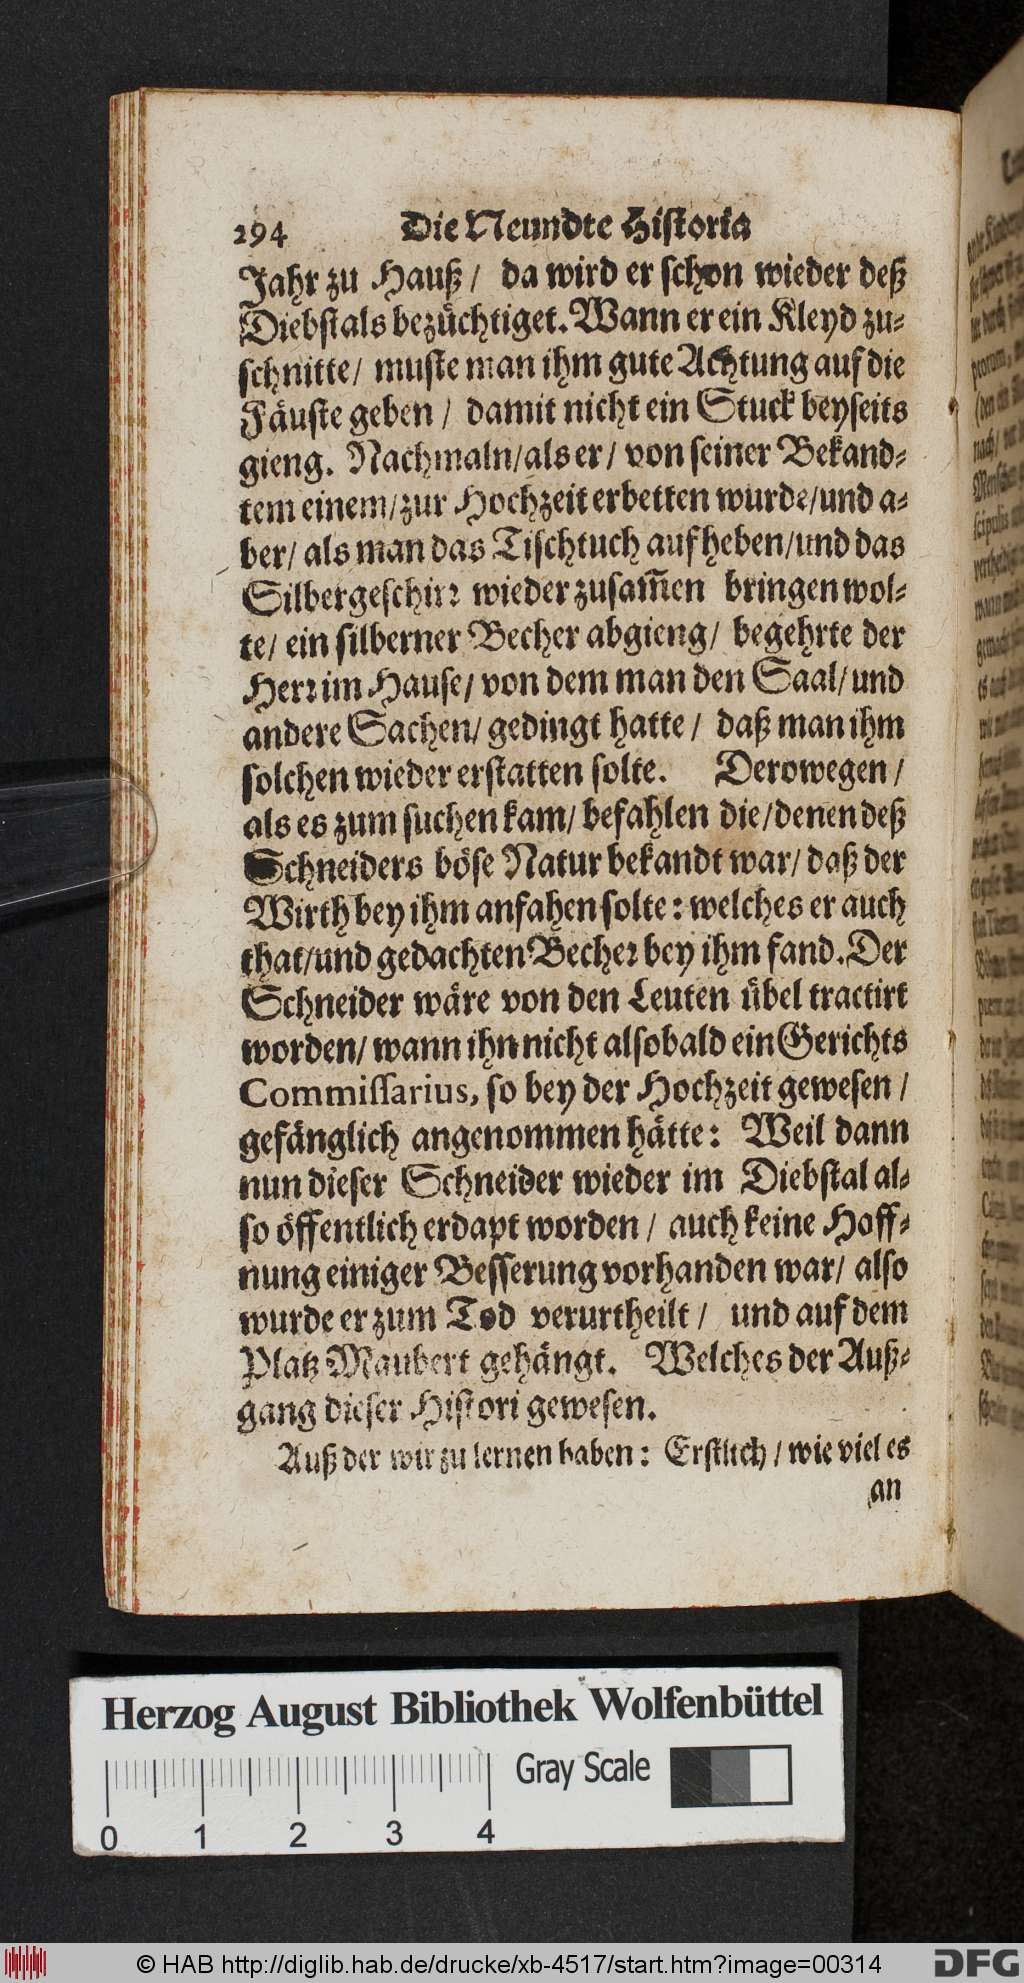 294 Die Neundte Historia
Jahr zu Hauß / da wird er schon wieder deß
Diebstals bezüchtiget. Wann er ein Kleyd zu⸗
schnitte / muste man ihm gute Achtung auf die
Fäuste geben / damit nicht ein Stuck beyseits
gieng. Nachmaln / als er / von seiner Bekand⸗
tem einem / zur Hochzeit erbetten wurde / und a⸗
ber / als man das Tischtuch aufheben / und das
Silbergeschirꝛ wieder zusam̃en bringen wol⸗
te / ein silberner Becher abgieng / begehrte der
Herꝛ im Hause / von dem man den Saal / und
andere Sachen / gedingt hatte / daß man ihm
solchen wieder erstatten solte. Derowegen /
als es zum suchen kam / befahlen die / denen deß
Schneiders böse Natur bekandt war / daß der
Wirth bey ihm anfahen solte: welches er auch
that / und gedachten Becheꝛ bey ihm fand. Der
Schneider wäre von den Leuten übel tractirt
worden / wann ihn nicht alsobald ein Gerichts
Commissarius, so bey der Hochzeit gewesen /
gefänglich angenommen hätte: Weil dann
nun dieser Schneider wieder im Diebstal al⸗
so öffentlich erdapt worden / auch keine Hoff⸗
nung einiger Besserung vorhanden war / also
wurde er zum Tod verurtheilt / und auf dem
Platz Maubert gehängt. Welches der Auß⸗
gang dieser Histori gewesen.
Auß der wir zu lernen haben: Erstlich / wie viel es
an
Herzog August Bibliothek Wolfenbüttel
Gray Scale
0 1 2 3 4
© HAB http://diglib.hab.de/drucke/xb-4517/start.htm?image=00314
DFG